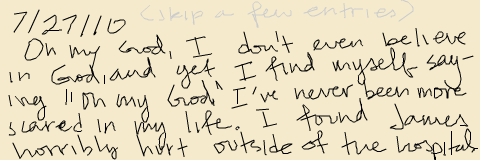 7/27/10 (skip a few entries)
Oh my God, I don't even believe
in God, and yet I find myself say-
ing "Oh my God" I've never been more
scared in my life. I found James
horribly hurt outside of the hospital